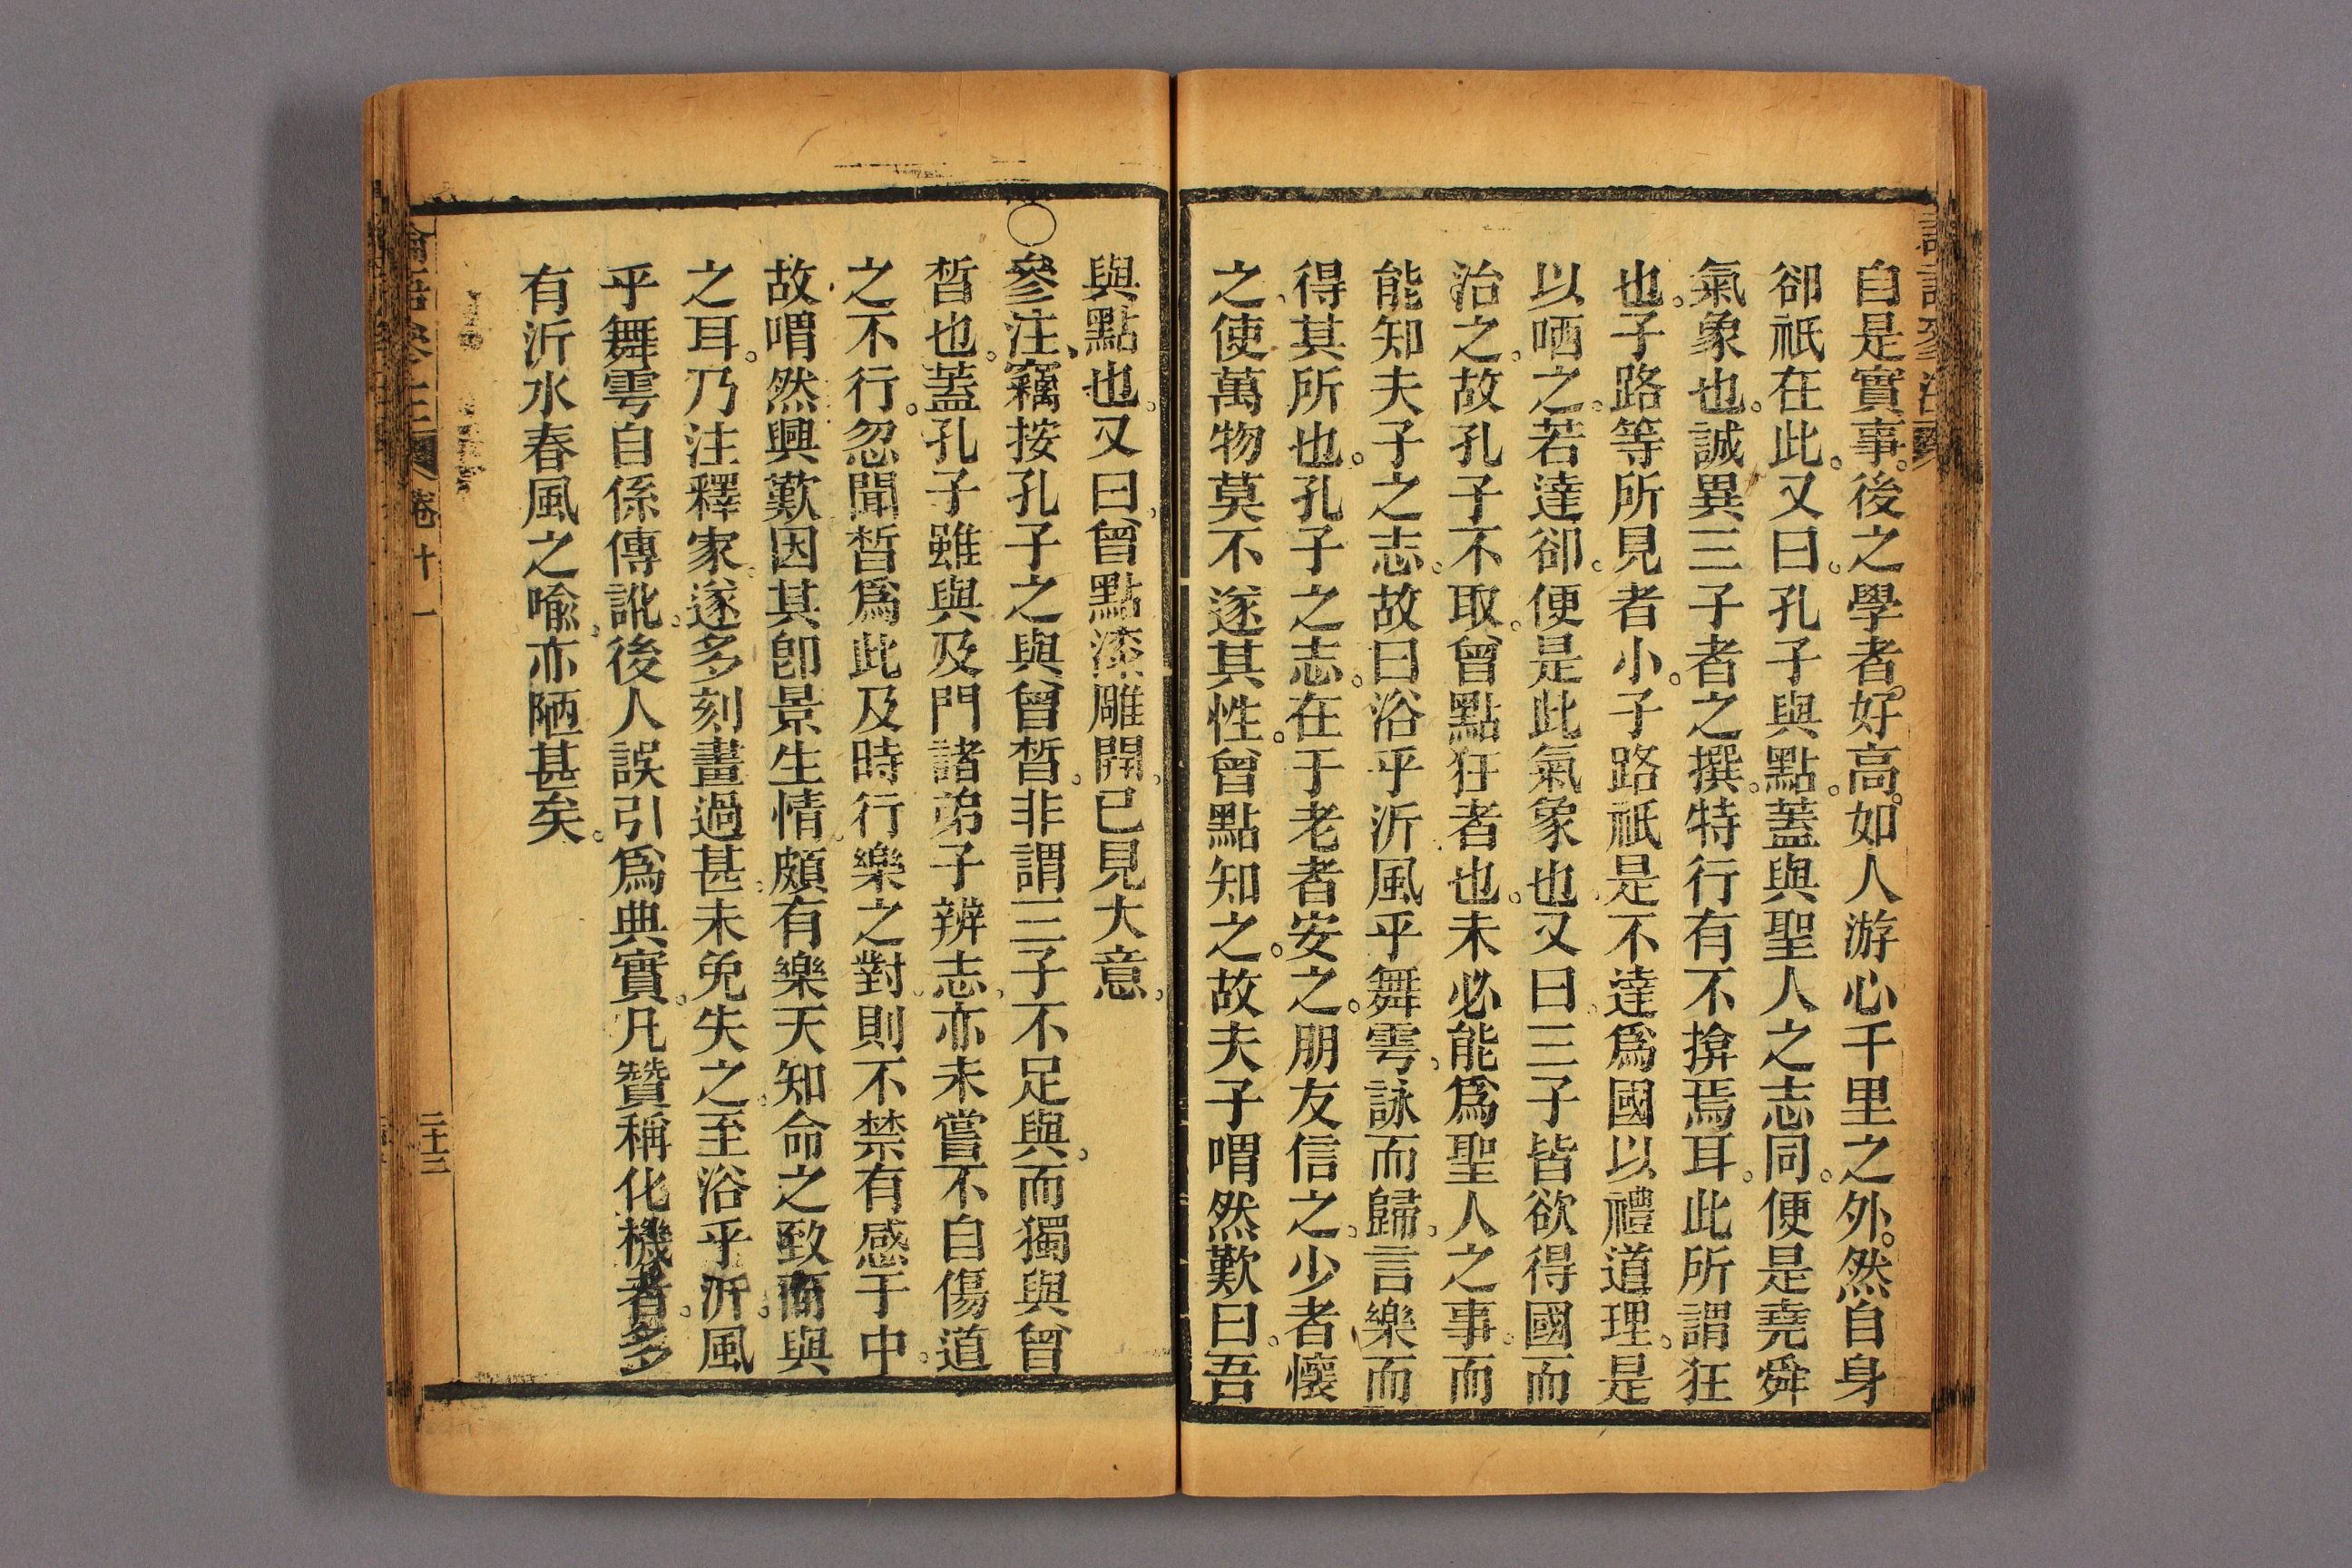 自是實事。後之學者。好高。如人游心千里之外。然自身
卻祇在此。又曰。孔子與點。蓋與聖人之志同。便是堯舜
氣象也。誠異三子者之撰。特行有不揜焉耳。此所謂狂
也。子路等所見者小。子路祇是不達爲國以禮道理。是
以哂之。若達卻。便是此氣象也。又曰。三子皆欲得國而
治之。故孔子不取。曾點狂者也。未必能爲聖人之事。而
能知夫子之志。故曰浴乎沂風乎舞雩。詠而歸。言樂而
得其所也。孔子之志。在于老者安之。朋友信之。少者懷
之。使萬物莫不遂其性。曾點知之。故夫子喟然歎曰。吾
與點也。又曰。曾點漆雕開。已見大意。
○參注、竊按孔子之與曾晳。非謂三子不足與。而獨與曾
晳也。蓋孔子雖與及門諸弟子辨志。亦未嘗不自傷道
之不行。忽聞晳爲此及時行樂之對。則不禁有感于中。
故喟然興歎。因其卽景生情。頗有樂天知命之致而與
之耳。乃注釋家。遂多刻畫過甚。未免失之。至浴乎沂。風
乎舞雩自係傳訛。後人誤引爲典實。凡贊稱化機者。多
有沂水春風之喩。亦陋甚矣。
論語參注
卷十一
二十三